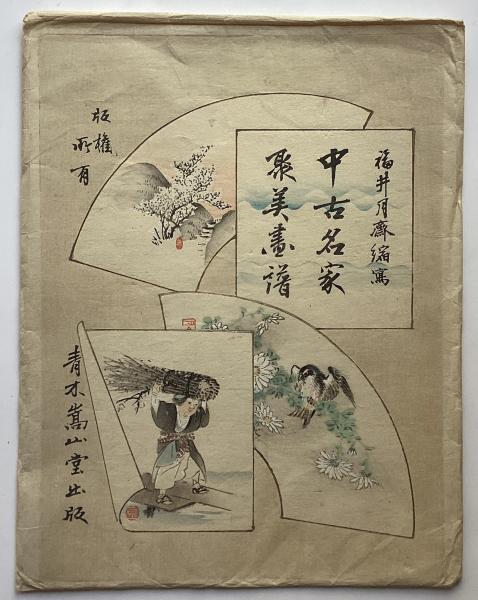 福井月齋縮寫
中古名家
聚美畫譜
版權
所有
青木嵩山堂出版